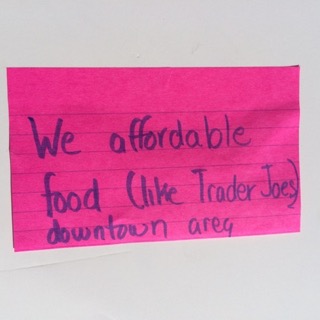 We affordable
food (like Trader Joes)
downtown area